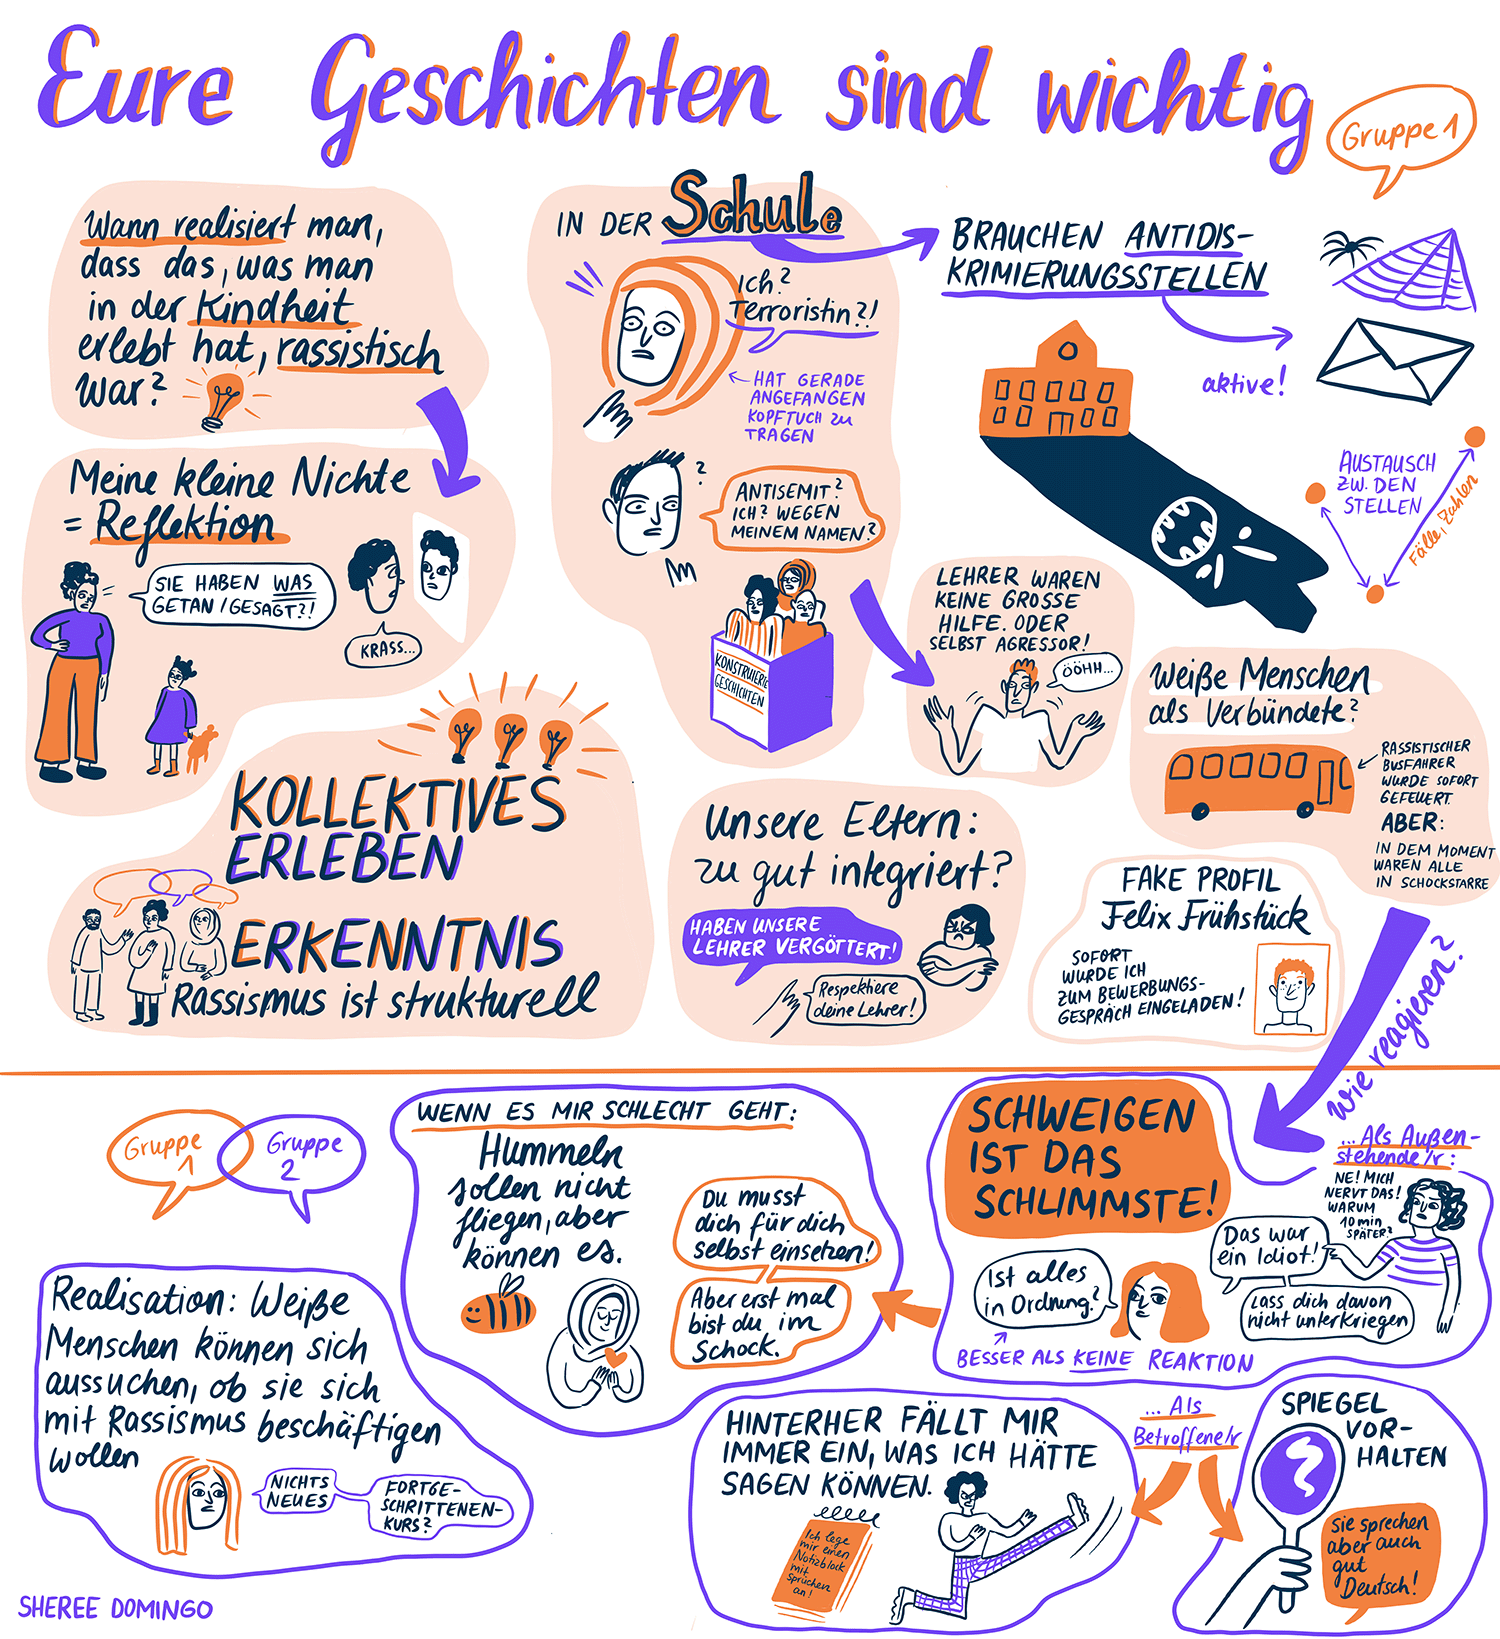 Eure Geschichten sind wichtig
Gruppe 1
Wann realisiert man,
dass das, was man
in der Kindheit
erlebt hat, rassistisch
war?
Meine kleine Nichte
= Reflektion
SIE HABEN WAS
GETAN / GESAGT?!
KRASS...
KOLLEKTIVES
ERLEBEN
ERKENNTNIS
Rassismus ist strukturell
IN DER Schule
Ich?
Terroristin?!
HAT GERADE
ANGEFANGEN
KOPFTUCH ZU
TRAGEN
?
ANTISEMIT?
ICH? WEGEN
MEINEM NAMEN?
KONSTRUIERTE
GESCHICHTEN
BRAUCHEN ANTIDIS-
KRIMIERUNGSSTELLEN
aktive!
AUSTAUSCH
ZW. DEN
STELLEN
Fälle, Zahlen
LEHRER WAREN
KEINE GROSSE
HILFE. ODER
SELBST AGRESSOR!
ÖÖHH...
Weiße Menschen
als Verbündete?
RASSISTISCHER
BUSFAHRER
WURDE SOFORT
GEFEUERT.
ABER:
IN DEM MOMENT
WAREN ALLE
IN SCHOCKSTARRE
Unsere Eltern:
zu gut integriert?
HABEN UNSERE
LEHRER VERGÖTTERT!
Respektiere
deine Lehrer!
FAKE PROFIL
Felix Frühstück
SOFORT
WURDE ICH
ZUM BEWERBUNGS-
GESPRÄCH EINGELADEN!
Wie reagieren?
Gruppe
1
Gruppe
2
WENN ES MIR SCHLECHT GEHT:
Hummeln
sollen nicht
fliegen, aber
können es.
Du musst
dich für dich
selbst einsetzen!
Aber erst mal
bist du im
Schock.
SCHWEIGEN
IST DAS
SCHLIMMSTE!
Ist alles
in Ordnung?
BESSER ALS KEINE REAKTION
... Als Außen-
stehende/r:
NE! MICH
NERVT DAS!
WARUM
10 min
SPÄTER?
Das war
ein Idiot!
Lass dich davon
nicht unterkriegen
Realisation: Weiße
Menschen können sich
aussuchen, ob sie sich
mit Rassismus beschäftigen
wollen
NICHTS
NEUES
FORTGE-
SCHRITTENEN-
KURS?
HINTERHER FÄLLT MIR
IMMER EIN, WAS ICH HÄTTE
SAGEN KÖNNEN.
Ich lege
mir einen
Notizblock
mit
Sprüchen
an!
... Als
Betroffene/r
SPIEGEL
VOR-
HALTEN
?
Sie sprechen
aber auch
gut
Deutsch!
SHEREE DOMINGO